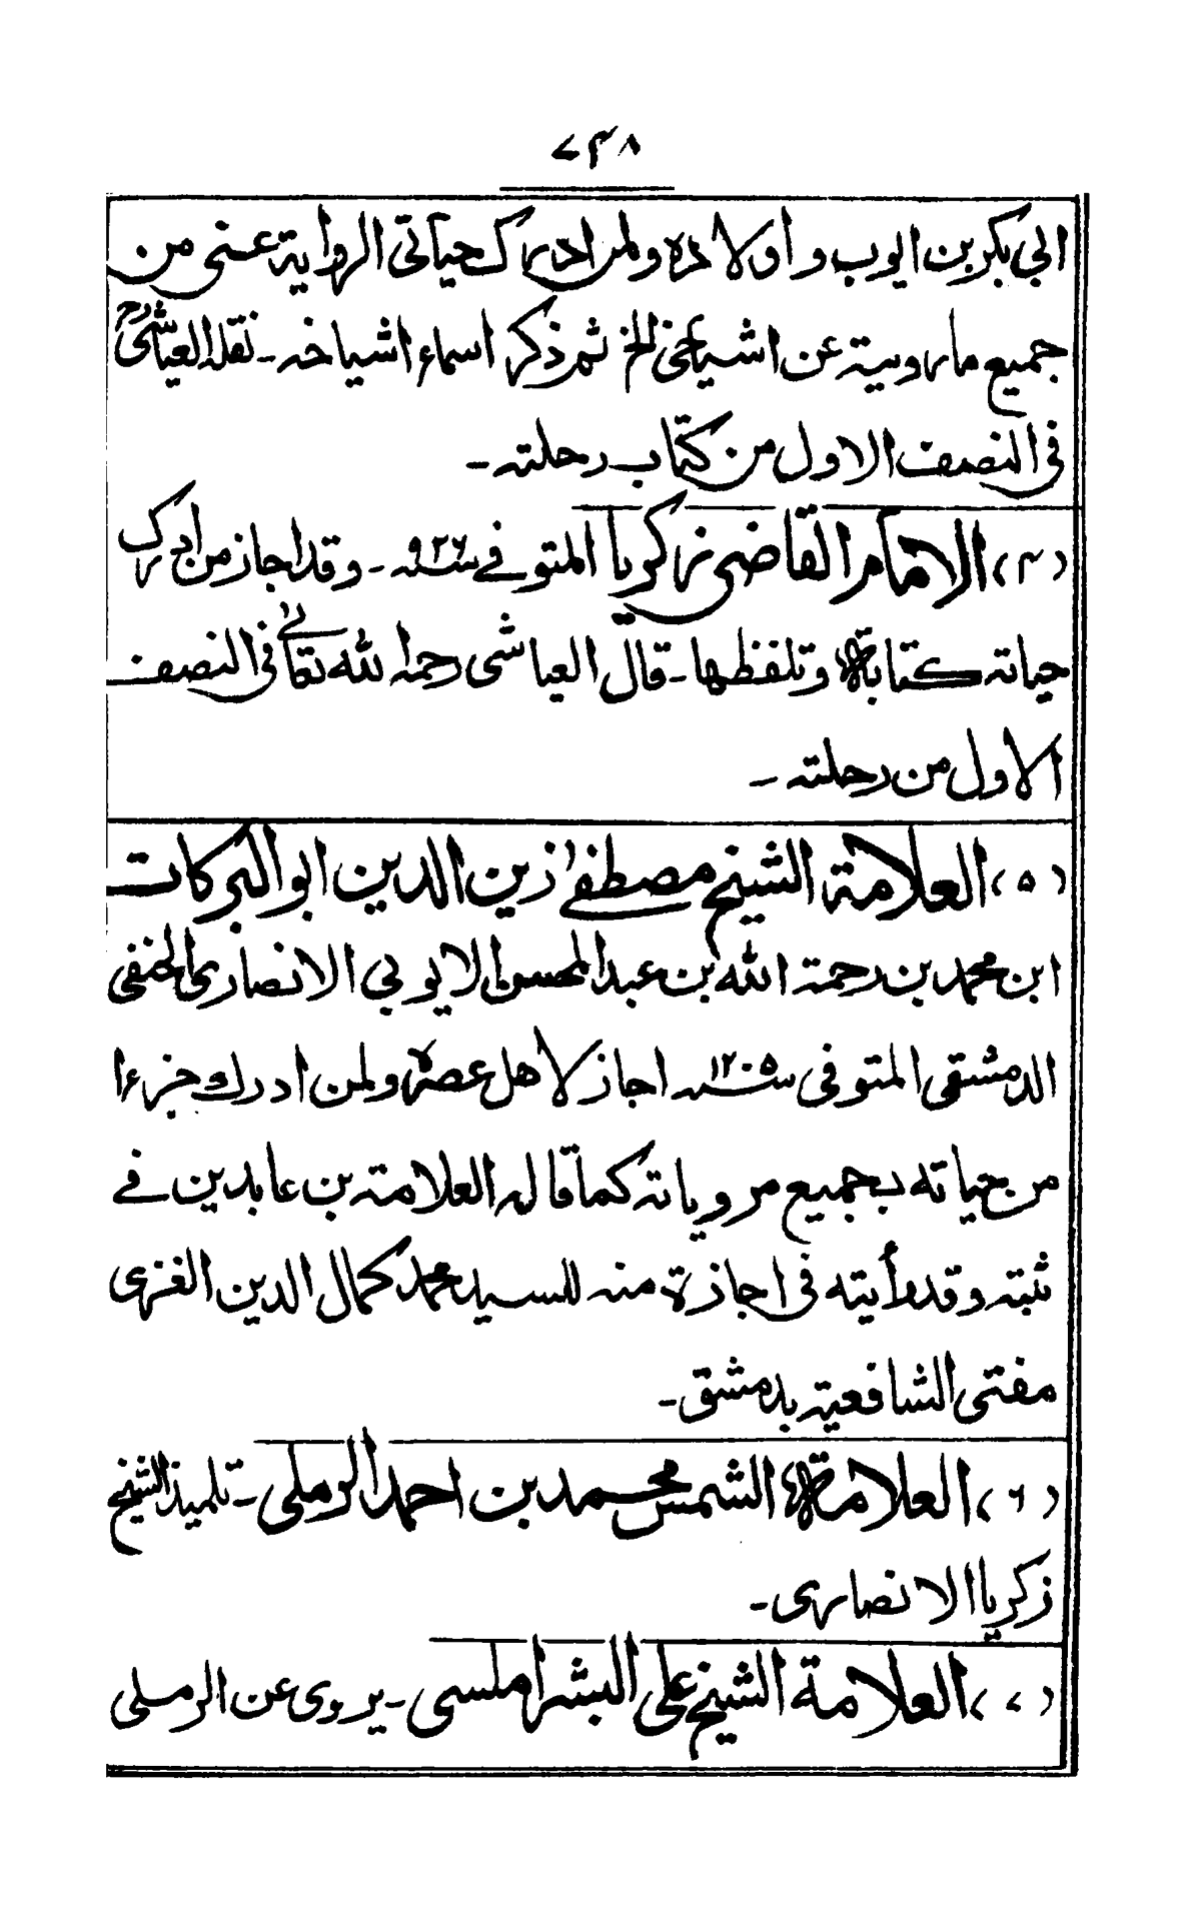 ۷۳۸
ابي بكر بن ايوب و أولاده ولمن ادرك حياتي الرواية عنى من
جميع مارويته عن اشياخي الخ ثم ذكر اسماء اشياخه ـ نقله العياشيؒ
في النصف الاول من كتاب رحلته ـ
(۴) الامام القاضى زكريا المتوفى سنه ۹۲۶ ـ وقد اجاز من ادرك
حياته كتابة وتلفظها ـ قال العياشى رحمه الله تعالى في النصف
الاول من رحلته ـ
(۵) العلامة الشيخ مصطفى زين الدين ابوالبركات
ابن محمد بن رحمة الله بن عبدالمحسن الايوبي الانصارى الحنفى
الدمشقى المتوفى سنه ۱۲۰۵ اجاز لاهل عصره ولمن ادرك جزءا
من حياته بجميع مروياته كما قاله العلامة بن عابدين في
ثبته وقد رأيته في اجازة منه للسيد محمد كمال الدين الغزى
مفتى الشافعية بدمشق ـ
(۶) العلامة الشمس محمد بن احمد الرملى ـ تلميذ الشيخ
زكريا الانصارى ـ
(۷) العلامة الشيخ على الشبراملسى ـ يروى عن الرملى